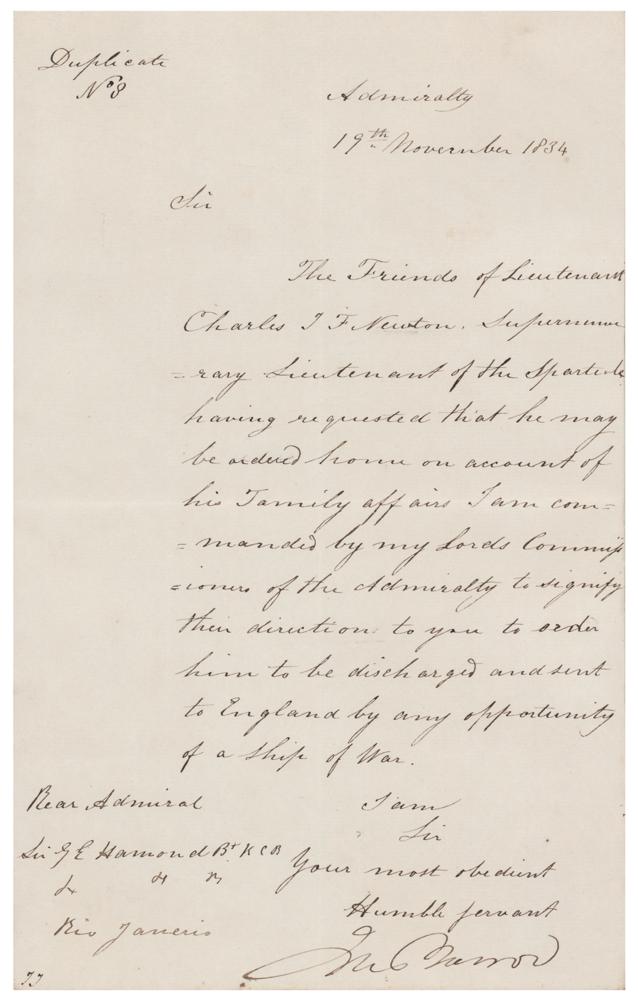 Duplicate
No 8
Admiralty
19th November 1834
Sir
The Friends of Lieutenant
Charles J F Newton. Supernume
=rary Lieutenant of the Spartiate
having requested that he may
be ordered home on account of
his Family affairs I am com=
=manded by my Lords Commiss
=ioners of the Admiralty to signify
their direction to you to order
him to be discharged and sent
to England by any opportunity
of a Ship of War.
I am
Sir
Your most obedient
Humble servant
Jno Barrow
Rear Admiral
Sir G E Hamond Bt K C B
&c &c &c
Rio Janeiro